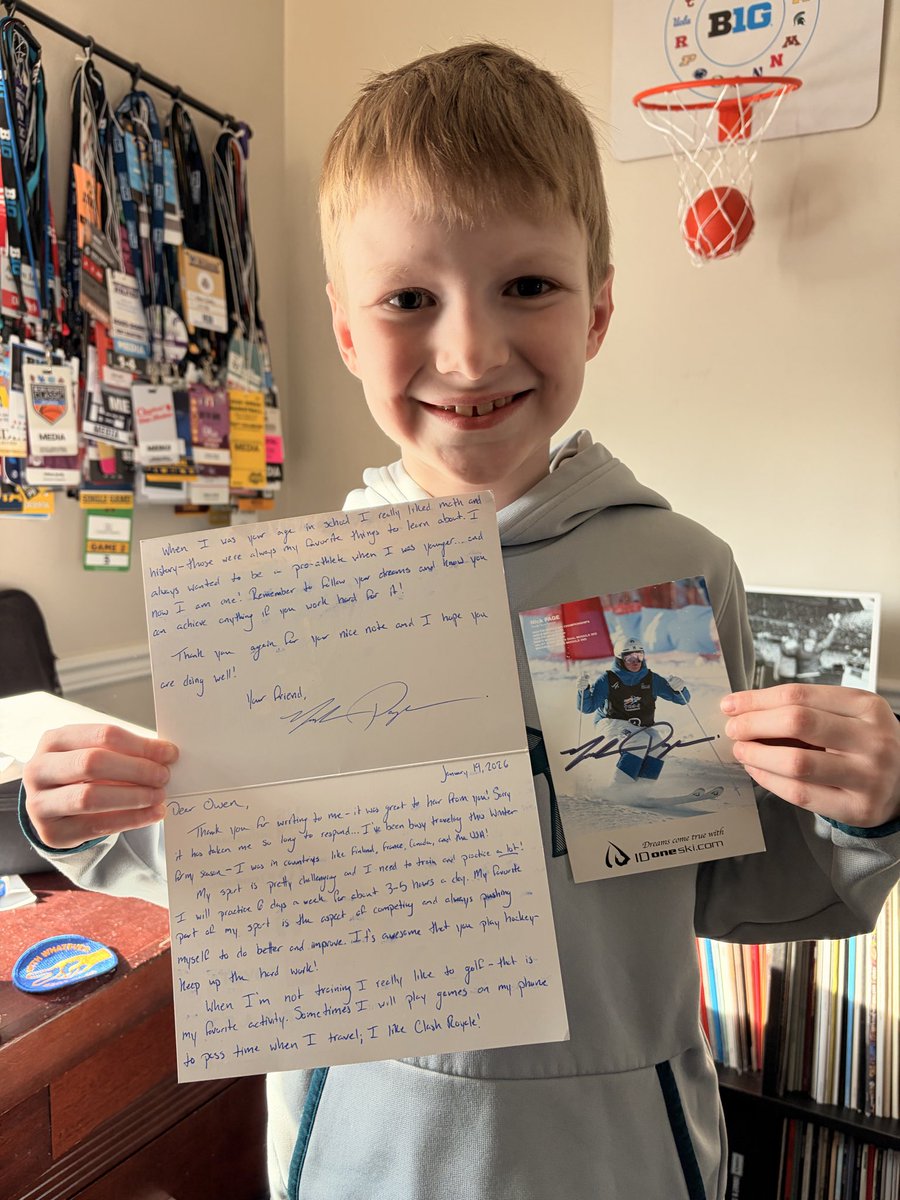 B1G
UCLA
MEDIA
MEDIA
MEDIA
SINGLE GAME
GAME 2
When I was your age in school I really liked math and
history - those were always my favorite things to learn about. I
always wanted to be a pro-athlete when I was younger... and
now I am one! Remember to follow your dreams and know you
can achieve anything if you work hard for it!
Thank you again for your nice note and I hope you
are doing well!
Your friend,
Nick Page
January 19, 2026
Dear Owen,
Thank you for writing to me - it was great to hear from you! Sorry
it has taken me so long to respond... I've been busy traveling this Winter
for my season - I was in countries like Finland, France, Canada, and the USA!
My sport is pretty challenging and I need to train and practice a lot!
I will practice 6 days a week for about 3-5 hours a day. My favorite
part of my sport is the aspect of competing and always pushing
myself to do better and improve. It's awesome that you play hockey-
keep up the hard work!
When I'm not training I really like to golf - that is
my favorite activity. Sometimes I will play games on my phone
to pass time when I travel; I like Clash Royale!
Nick PAGE
Nick Page
Dreams come true with
ID one ski.com